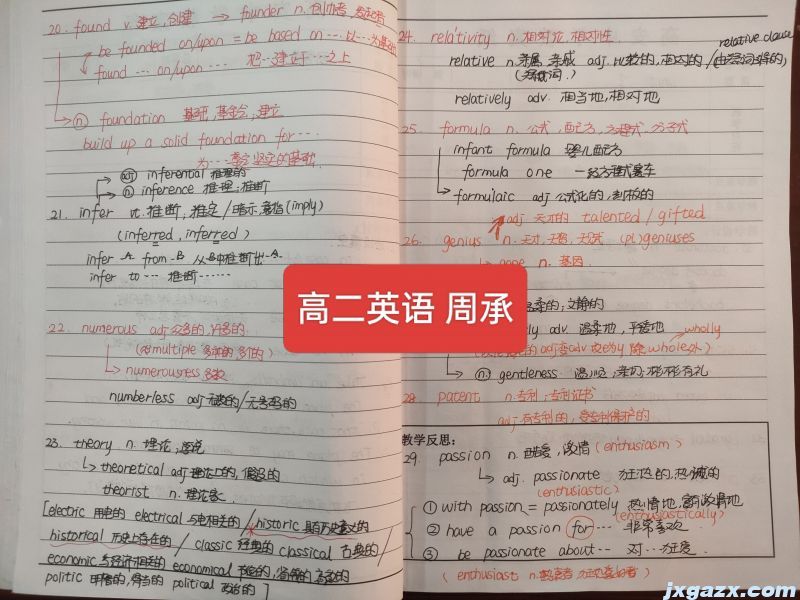 20. found v. 建立, 创建 → founder n. 创办者, 发起者
be founded on/upon = be based on … 以…为基础
found … on/upon … 把…建于…之上
(n) foundation 基础, 基金会, 建立
build up a solid foundation for …
为…奠定坚实的基础
adj inferential 推理的
n inference 推理, 推断
21. infer vt. 推断, 推定/暗示, 意指(imply)
(inferred, inferred)
infer A from B 从B中推断出A
infer to … 推断……
22. numerous adj 众多的, 许多的
(multiple 多种的, 多倍的)
numerousness 多数
numberless adj 无数的/无号码的
23. theory n. 理论, 学说
theoretical adj 理论上的, 假设的
theorist n. 理论家
[electric 用电的 electrical 与电相关的/historic 具有历史意义的
historical 历史上存在的/classic 经典的 classical 古典的/
economic 与经济相关的 economical 节俭的
politic 得当的 political 政治的]
24. relativity n. 相对论, 相对性
relative clause
relative n. 亲属, 亲戚 adj. 比较的, 相对的
relatively adv. 相当地, 相对地
25. formula n. 公式, 配方, 方程式, 分子式
infant formula 婴儿配方
formula one 一级方程式赛车
formulaic adj 公式化的, 刻板的
adj 天才的 talented/gifted
26. genius n. 天才, 天赋 (pl) geniuses
gene n. 基因
高二英语 周承
文静的
adv. 温柔地, 平缓地
wholly
adj变adv 除whole外)
(n) gentleness 温顺; 亲切; 彬彬有礼
28. patent n. 专利; 专利证书
adj 有专利的, 受专利保护的
教学反思:
29. passion n. 酷爱, 激情 (enthusiasm)
adj. passionate 狂热的, 热诚的
(enthusiastic)
① with passion = passionately 热情地, 富有激情地
(enthusiastically)
② have a passion for … 非常喜欢
③ be passionate about … 对…狂爱.
(enthusiast n. 热衷者)
jxgazx.com